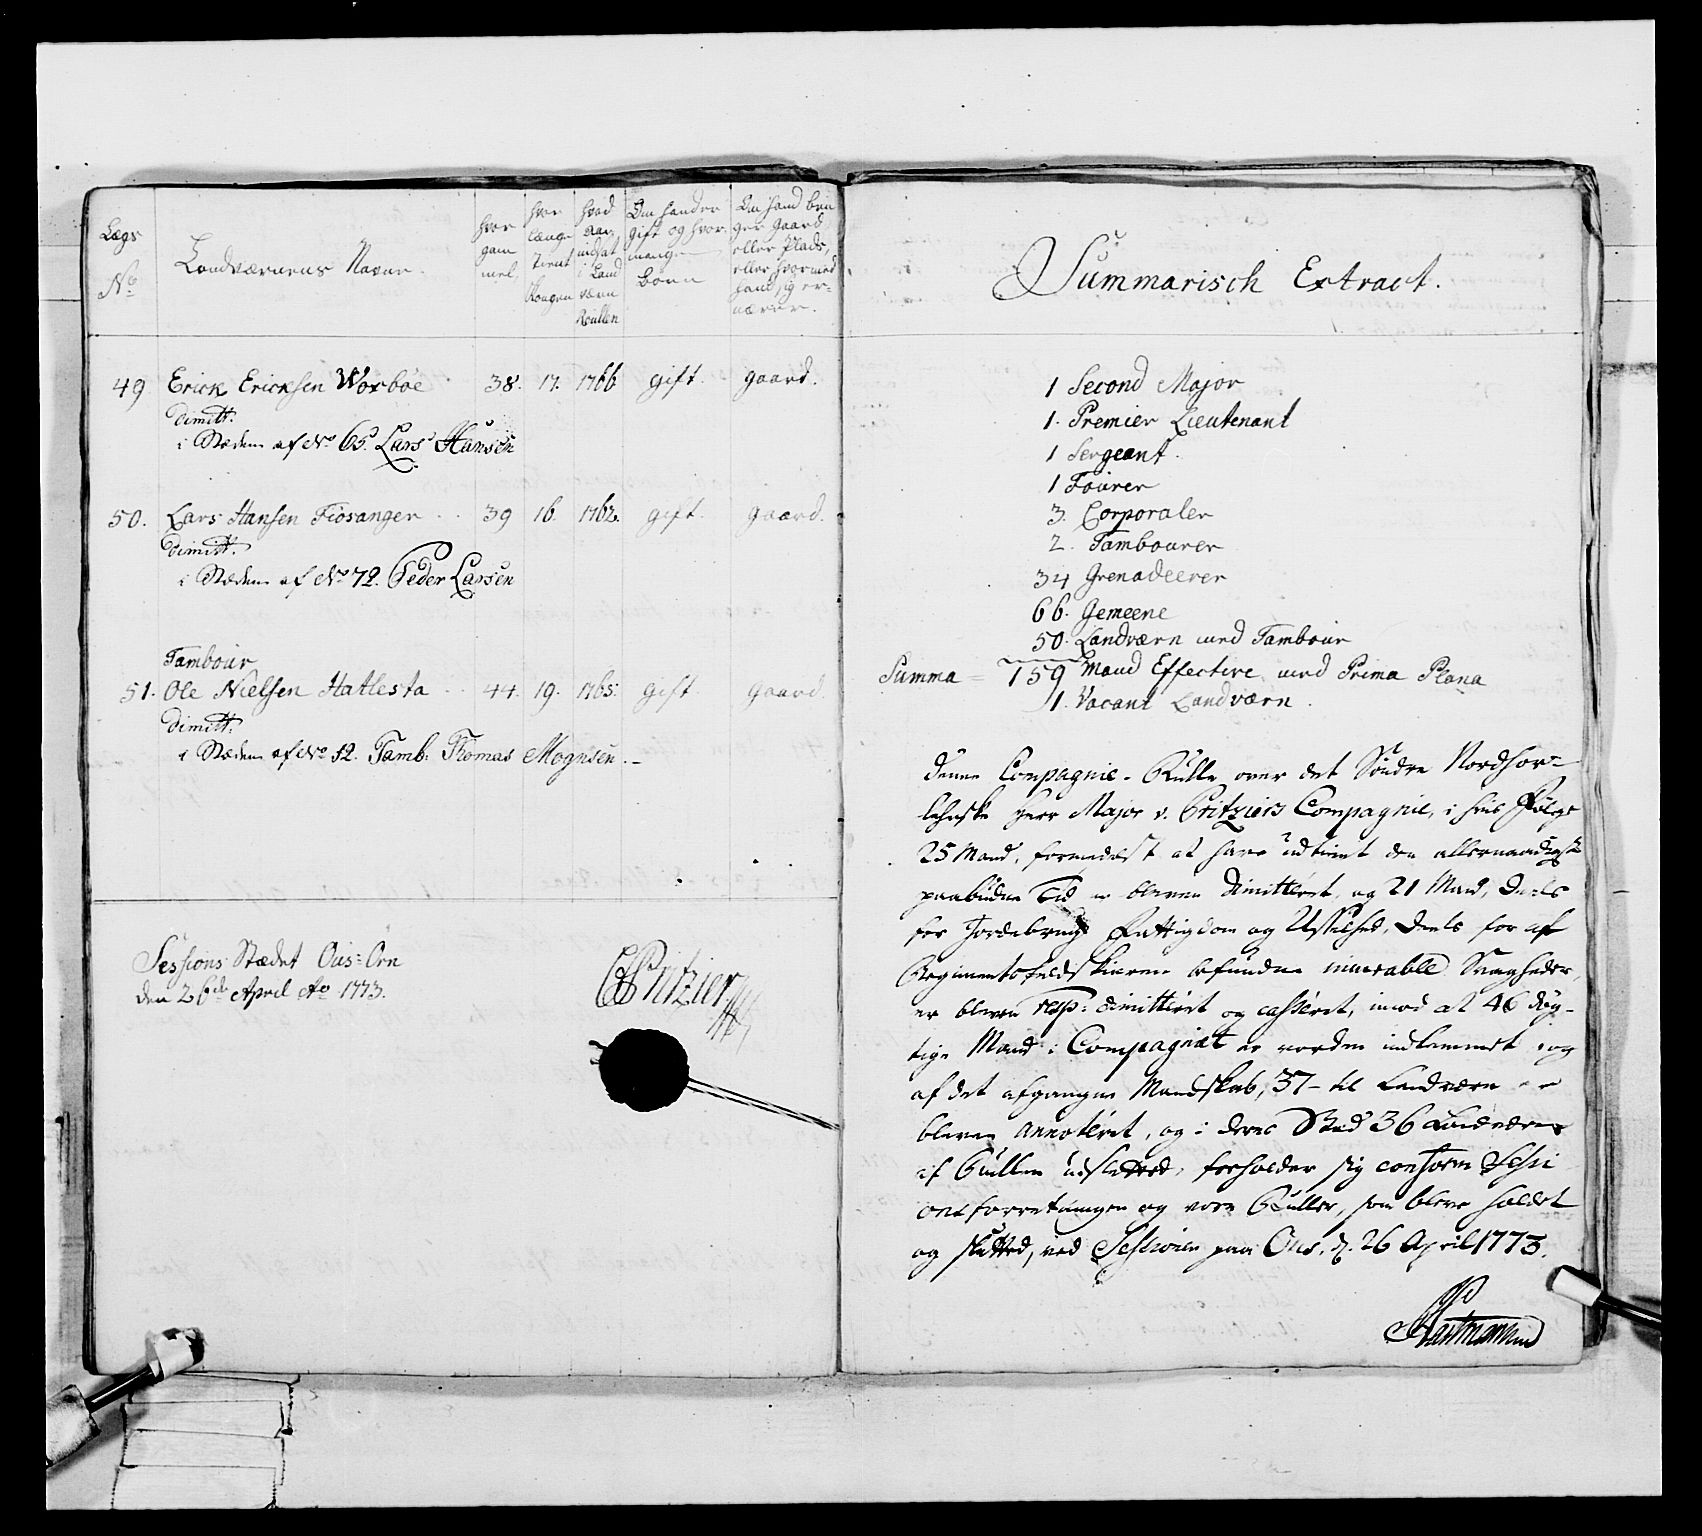 Lægs
No
Landværnens Navne.
hvor
gam
mel,
hvor
længe
tient
Kongen
hvad
Aar,
indsat
i Land
værn
Rullen
Om hand er
gift og hvor
mange
børn
Om hand bru
ger gaard
eller Plads,
eller hvormed
hand sig er-
nærer.
49 Erick Ericksen Woxboe 38. 17. 1766 gift. gaard.
dimitt:
i Stæden af No 65. Lars Hansen
50. Lars Hansen Fiosanger 39 16. 1762. gift. gaard.
dimitt.
i Stæden af No 72. Peder Larsen
Tambour
51. Ole Nielsen Hatlesta 44. 19. 1765: gift gaard.
dimitt:
i Stæden af No 12. Tamb: Thomas Mognsen.
Sessions Stædet Ous=Ørn
den 26de April Ao 1773.
Pritzier
Summarisch Extract.
1 Second Major
1. Premier Lieutenant
1 Sergeant.
1 Fourer
3. Corporaler
2. Tambourer
34 Grenadeerer
66. Gemeene
50. Landværn med Tambour
Summa = 159 Mand Effective med Prima Plana
1. Vacant Landværn.
denne Compagnie-Rulle over det Søndre Nordhor=
lehnske Herr Major v. Pritziers Compagnie, i hvis Følge
25 Mand, formedelst at have udtient den allernaadigst
paabudne Tid er bleven dimitteret, og 21 Mand, Deels
for Jordebrug, Fattigdom og Usselhed, Deels for af
Regimentsfeldskieren befundne incurable Svagheder,
er bleven resp: dimitteret og casseret, imod at 46 dyg-
tige Mand i Compagniet er worden indlemmet, og
af det afgangne Mandskab, 37 til Landværn er
bleven annoteret, og i deres Sted 36 Landværn
af Rullen udslettet, forholder sig conform Sessi
onsforretningen og vore Ruller, som bleve holdet
og sluttet, ved Sessionen paa Ous, d. 26 April 1773.
Hartmann